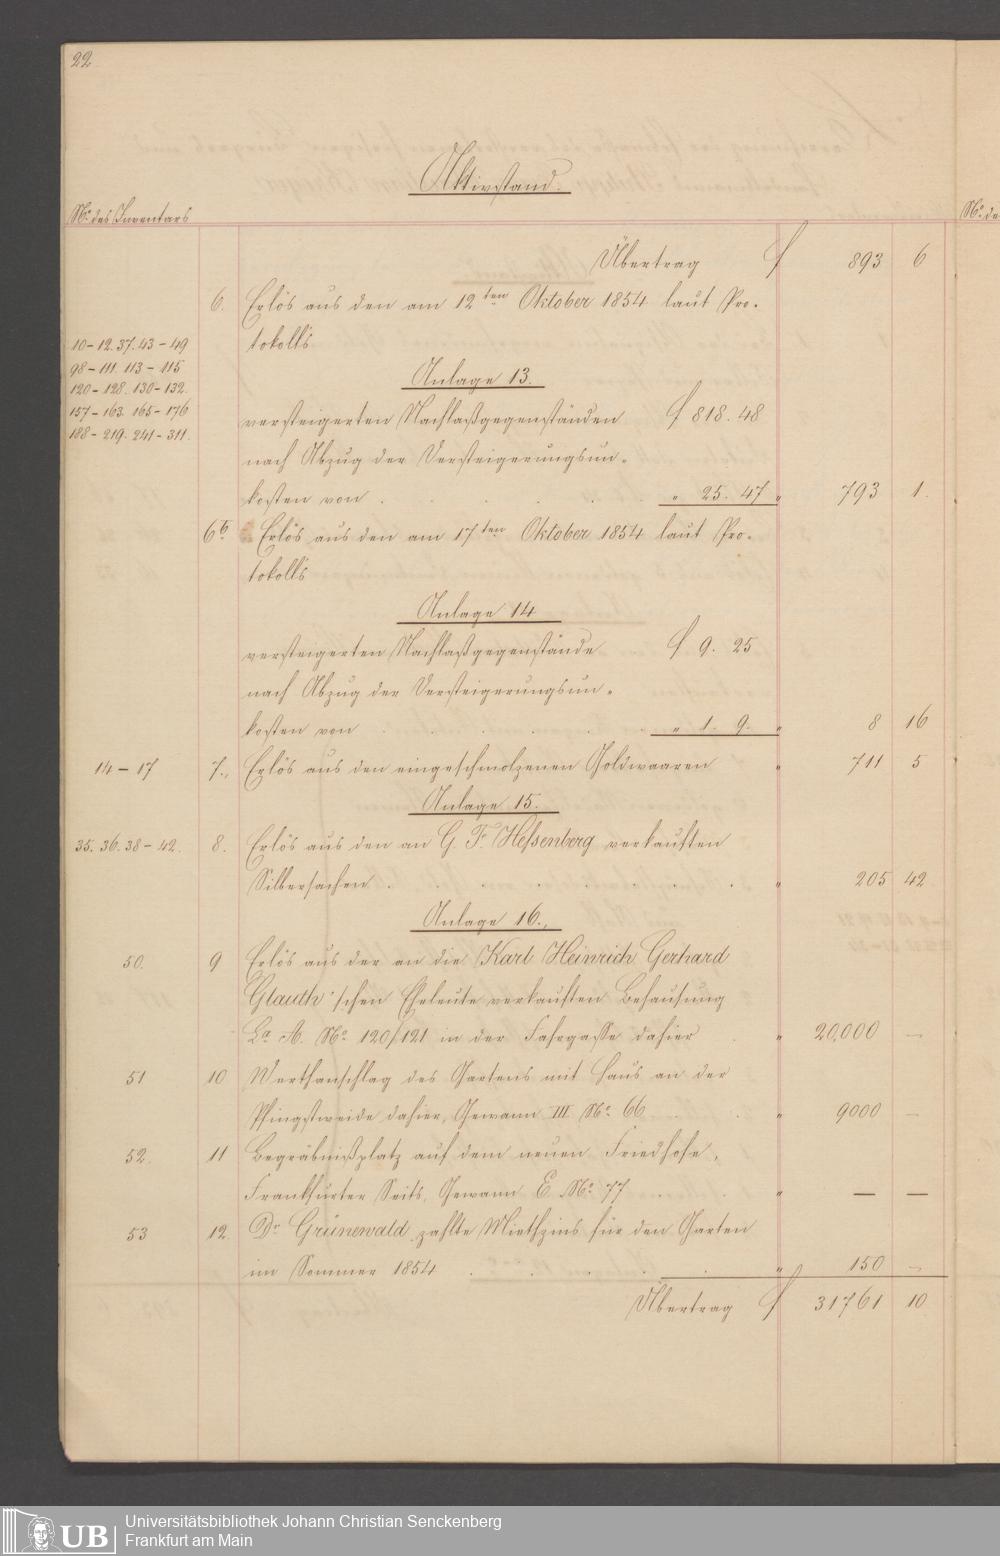 22
Aktivstand.
No. des Inventars
No. de
Übertrag f 893 6
6. Erlös aus den am 12ten Oktober 1854 laut Pro-
tokolls
10-12. 37. 43-49
98-111. 113-115
120-128. 130-132.
157-163. 165-176
188-219. 241-311.
Anlage 13.
versteigerten Nachlaßgegenständen f 818. 48
nach Abzug der Versteigerungsun-
kosten von . . . . . „ 25. 47 „ 793 1.
6b. Erlös aus den am 17ten Oktober 1854 laut Pro-
tokolls
Anlage 14
versteigerten Nachlaßgegenstände f 9. 25
nach Abzug der Versteigerungsun-
kosten von . . . . . „ 1. 9. „ 8 16
14-17 7., Erlös aus den eingeschmolzenen Goldwaaren „ 711 5
Anlage 15.
35. 36. 38-42. 8. Erlös aus den an G. F. Hessenberg verkauften
Silbersachen . . . . . . „ 205 42
Anlage 16.,
50. 9 Erlös aus der an die Karl Heinrich Gerhard
Glauth'schen Eheleute verkauften Behausung
La. A. No. 120/121 in der Fahrgasse dahier . „ 20,000 —
51 10 Werthanschlag des Gartens mit Haus an der
Pfingstweide dahier, Gewann III No. 66 . . „ 9000 —
52. 11 Begräbnißplatz auf dem neuen Friedhofe,
Frankfurter Seits, Gewann E. No. 77 . . „ — —
53 12. Dr. Grünewald zahlte Miethzins für den Garten
im Sommer 1854 . . . . . „ 150 —
Übertrag f 31761 10
UB Universitätsbibliothek Johann Christian Senckenberg
Frankfurt am Main